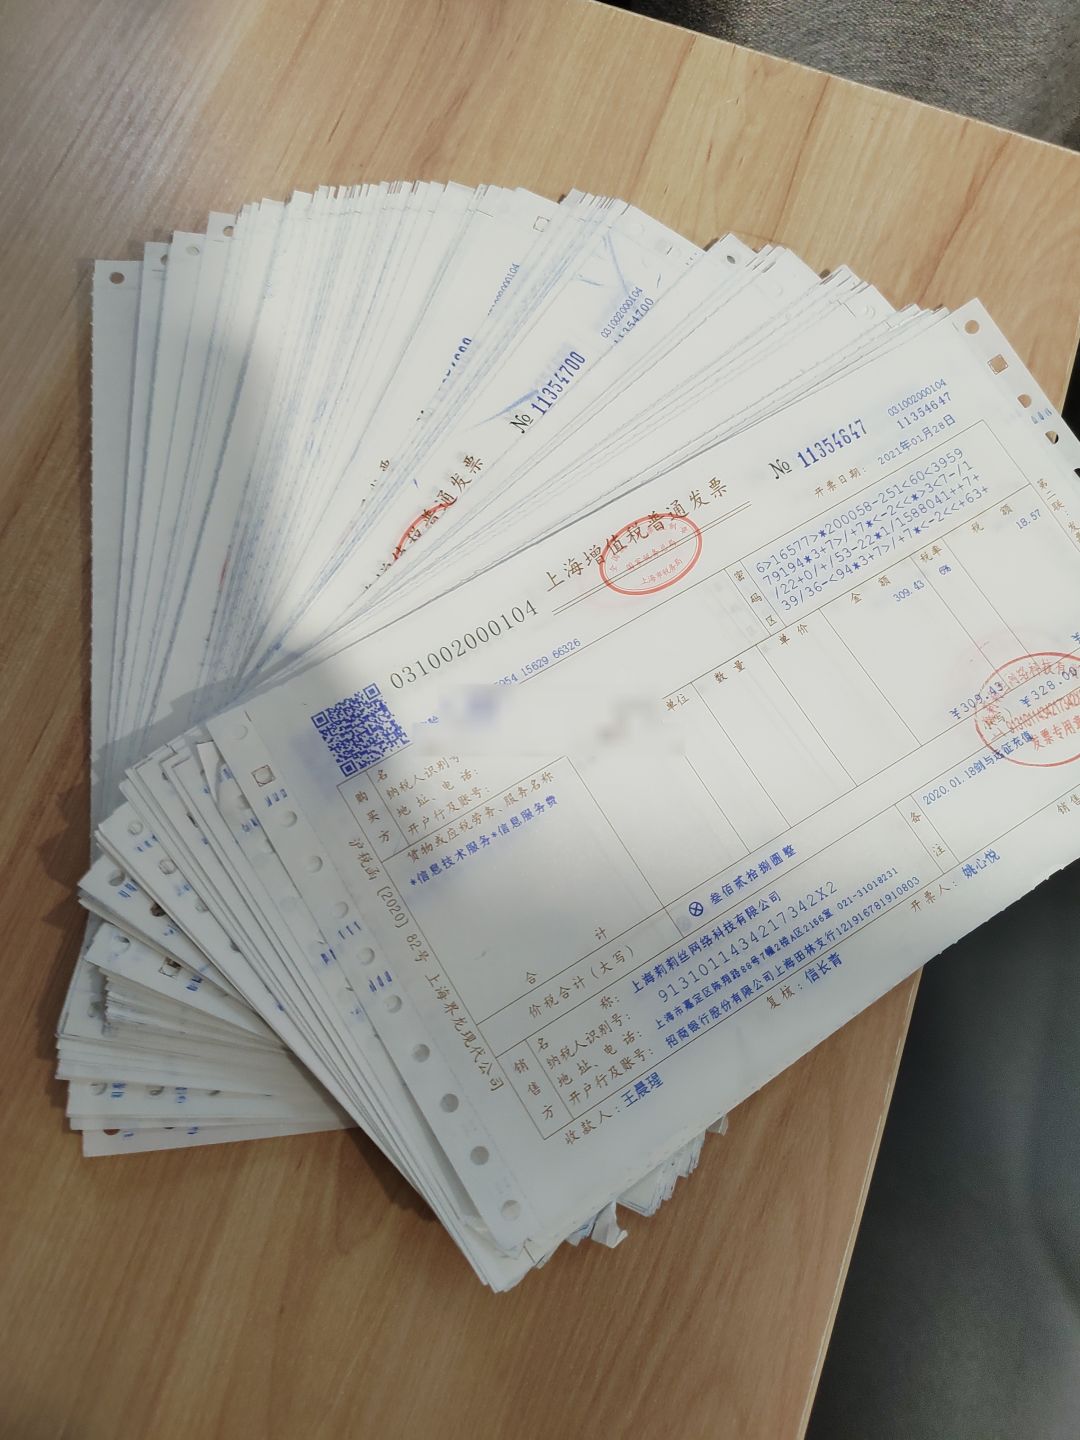 031002000104
上海增值税普通发票
№ 11354647
031002000104
11354647
开票日期: 2021年01月28日
№ 11354700
031002000104
11354700
031002000104
购买方
名
纳税人识别号
地址、电话:
开户行及账号:
密码区
6>16577>*200058-251<60<3959
79194*3+7>/+7*<-2<<*23<7-/1
/22+0/+/53-22*1/1588041++7+
39/36-<94*3+7>/+7*<-2<<+63+
货物或应税劳务、服务名称
单位
数量
单价
金额
税率
税额
*信息技术服务*信息服务费
309.43
6%
18.57
合计
¥309.43
价税合计(大写)
ⓧ 叁佰贰拾捌圆整
¥328.00
销售方
名称: 上海莉莉丝网络科技有限公司
纳税人识别号: 9131011434217342X2
地址、电话: 上海市嘉定区陈翔路88号7幢2楼A区2166室 021-31018231
开户行及账号: 招商银行股份有限公司上海田林支行121916781910803
备注
2020.01.18剑与远征充值
发票专用章
收款人: 王晨珵
复核: 信长青
开票人: 姚心悦
销售
第二联:
沪税函(2020)82号 上海界龙现代公司